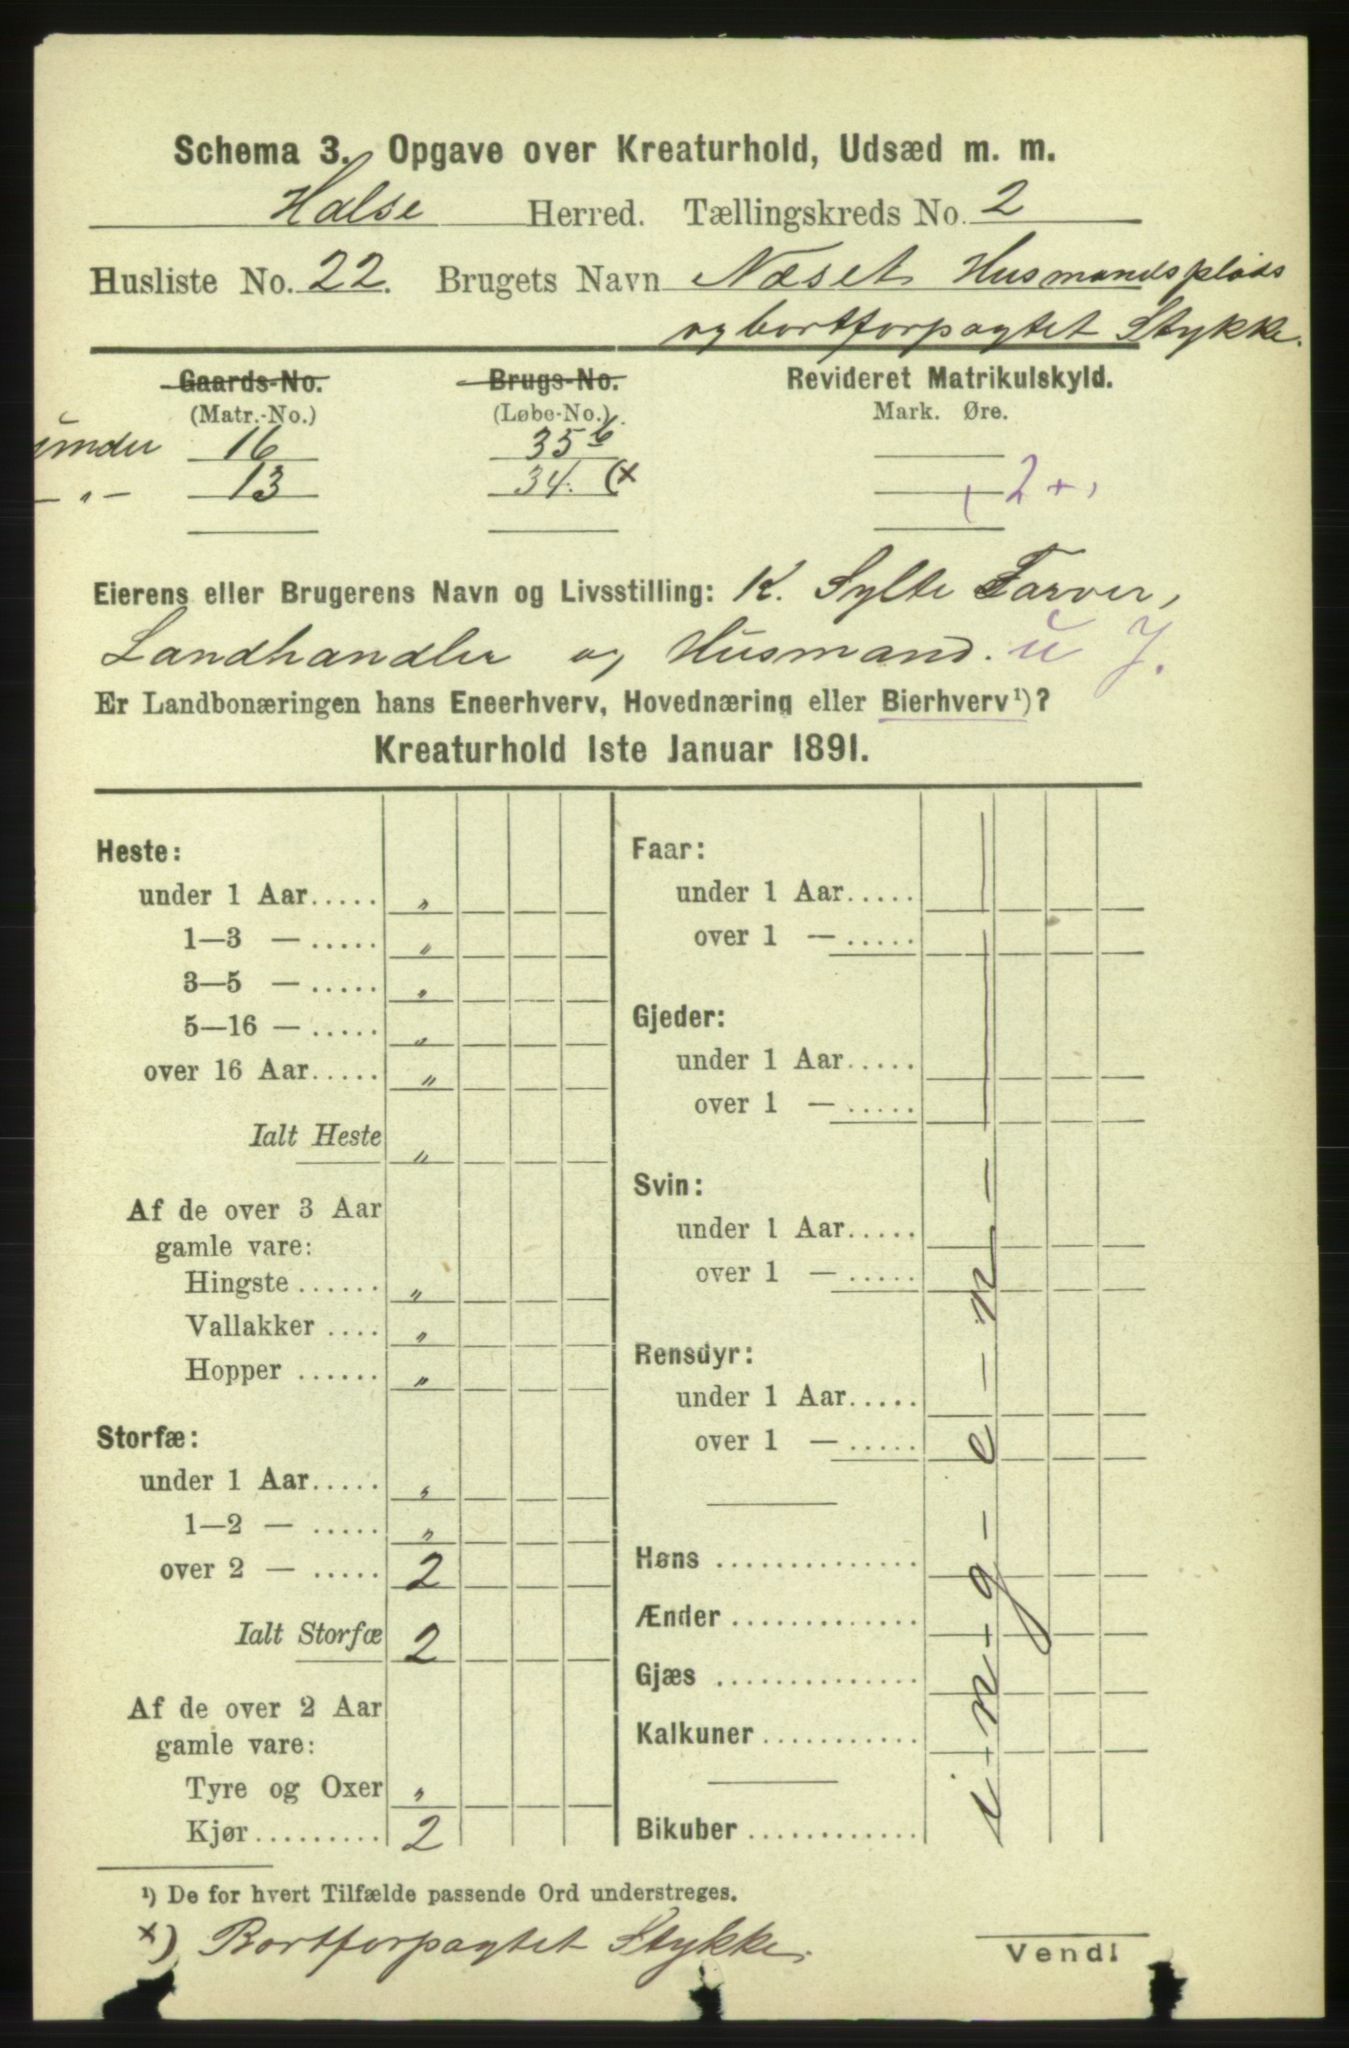 Schema 3. Opgave over Kreaturhold, Udsæd m. m.
Halse Herred. Tællingskreds No. 2
Husliste No. 22. Brugets Navn Næset Husmandsplads
og bortforpagtet Stykke.
Gaards-No. Brugs-No. Revideret Matrikulskyld.
(Matr.-No.) (Løbe-No.) Mark. Øre.
under 16 35 b
— „ — 13 34. (x
2 +
Eierens eller Brugerens Navn og Livsstilling: K. Sylte Farver,
Landhandler og Husmand. u J.
Er Landbonæringen hans Eneerhverv, Hovednæring eller Bierhverv¹)?
Kreaturhold 1ste Januar 1891.
Heste:
under 1 Aar..... „
1—3 — ..... „
3—5 — ..... „
5—16 — ..... „
over 16 Aar..... „
Ialt Heste „
Af de over 3 Aar
gamle vare:
Hingste ...... „
Vallakker .... „
Hopper ...... „
Storfæ:
under 1 Aar..... „
1—2 — ..... „
over 2 — ..... 2
Ialt Storfæ 2
Af de over 2 Aar
gamle vare:
Tyre og Oxer „
Kjør......... 2
Faar:
under 1 Aar.....
over 1 — .....
Gjeder:
under 1 Aar.....
over 1 — .....
Svin:
under 1 Aar.....
over 1 — .....
Rensdyr:
under 1 Aar.....
over 1 — .....
Høns ..............
Ænder .............
Gjæs ..............
Kalkuner ...........
Bikuber ............
i - n - g - e - n -
¹) De for hvert Tilfælde passende Ord understreges.
x) Bortforpagtet Stykke.
Vend!